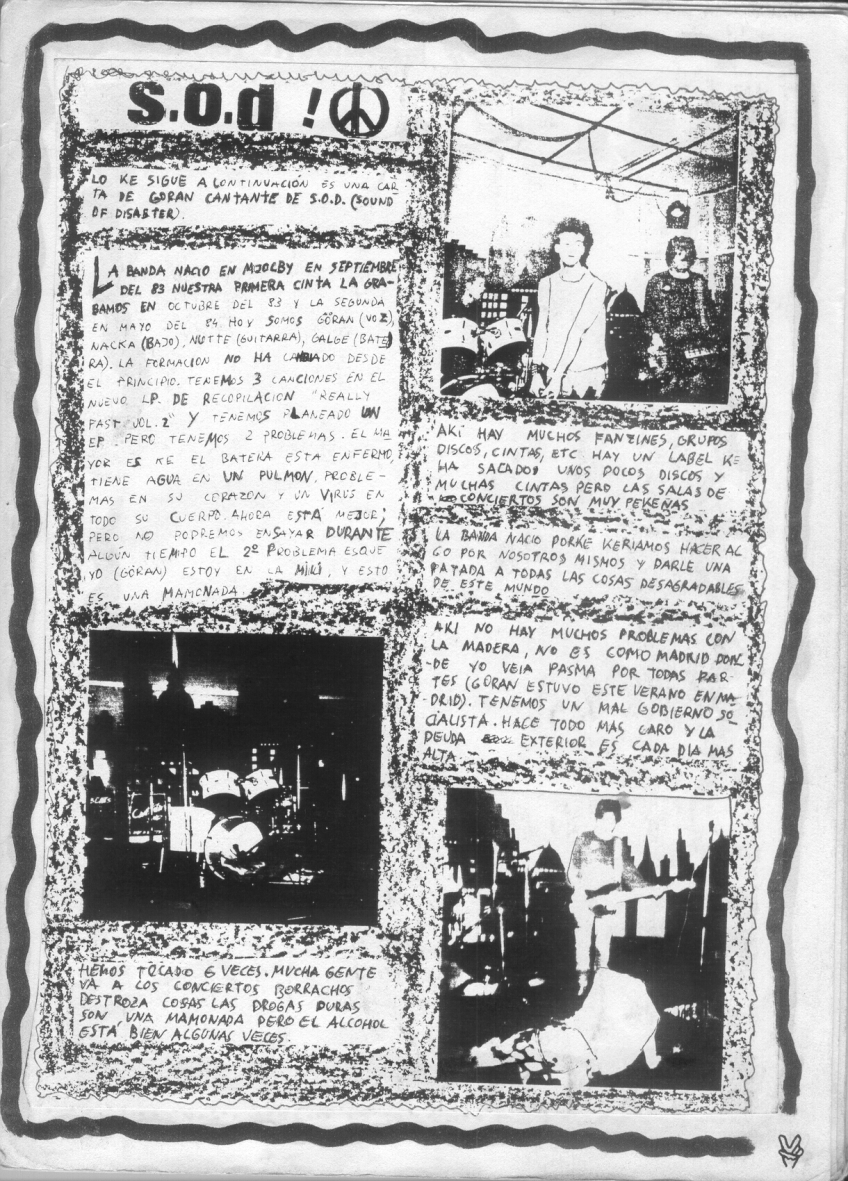 S.O.d !
LO KE SIGUE A CONTINUACIÓN ES UNA CAR
TA DE GÖRAN CANTANTE DE S.O.D. (SOUND
OF DISASTER).
LA BANDA NACIO EN MJOLBY EN SEPTIEMBRE
DEL 83 NUESTRA PRIMERA CINTA LA GRA-
BAMOS EN OCTUBRE DEL 83 Y LA SEGUNDA
EN MAYO DEL 84. HOY SOMOS GÖRAN (VOZ),
NACKA (BAJO), NUTTE (GUITARRA), GALGE (BATE
RA). LA FORMACION NO HA CAMBIADO DESDE
EL PRINCIPIO. TENEMOS 3 CANCIONES EN EL
NUEVO LP. DE RECOPILACION "REALLY
FAST VOL. 2" Y TENEMOS PLANEADO UN
EP. PERO TENEMOS 2 PROBLEMAS. EL MA
YOR ES KE EL BATERA ESTA ENFERMO,
TIENE AGUA EN UN PULMON, PROBLE-
MAS EN SU CORAZON Y UN VIRUS EN
TODO SU CUERPO. AHORA ESTÁ MEJOR,
PERO NO PODREMOS ENSAYAR DURANTE
ALGÚN TIEMPO EL 2º PROBLEMA ES QUE
YO (GÖRAN) ESTOY EN LA MILI, Y ESTO
ES UNA MAMONADA.
HEMOS TOCADO 6 VECES. MUCHA GENTE
VA A LOS CONCIERTOS BORRACHOS
DESTROZA COSAS LAS DROGAS DURAS
SON UNA MAMONADA PERO EL ALCOHOL
ESTÁ BIEN ALGUNAS VECES.
AKI HAY MUCHOS FANZINES, GRUPOS
DISCOS, CINTAS, ETC. HAY UN LABEL KE
HA SACADO UNOS POCOS DISCOS Y
MUCHAS CINTAS PERO LAS SALAS DE
CONCIERTOS SON MUY PEKEÑAS
LA BANDA NACIO PORKE KERIAMOS HACER AL
GO POR NOSOTROS MISMOS Y DARLE UNA
PATADA A TODAS LAS COSAS DESAGRADABLES
DE ESTE MUNDO
AKI NO HAY MUCHOS PROBLEMAS CON
LA MADERA, NO ES COMO MADRID DON
-DE YO VEIA PASMA POR TODAS PAR-
TES (GORAN ESTUVO ESTE VERANO EN MA
-DRID). TENEMOS UN MAL GOBIERNO SO
CIALISTA. HACE TODO MAS CARO Y LA
DEUDA EXTERIOR ES CADA DIA MAS
ALTA